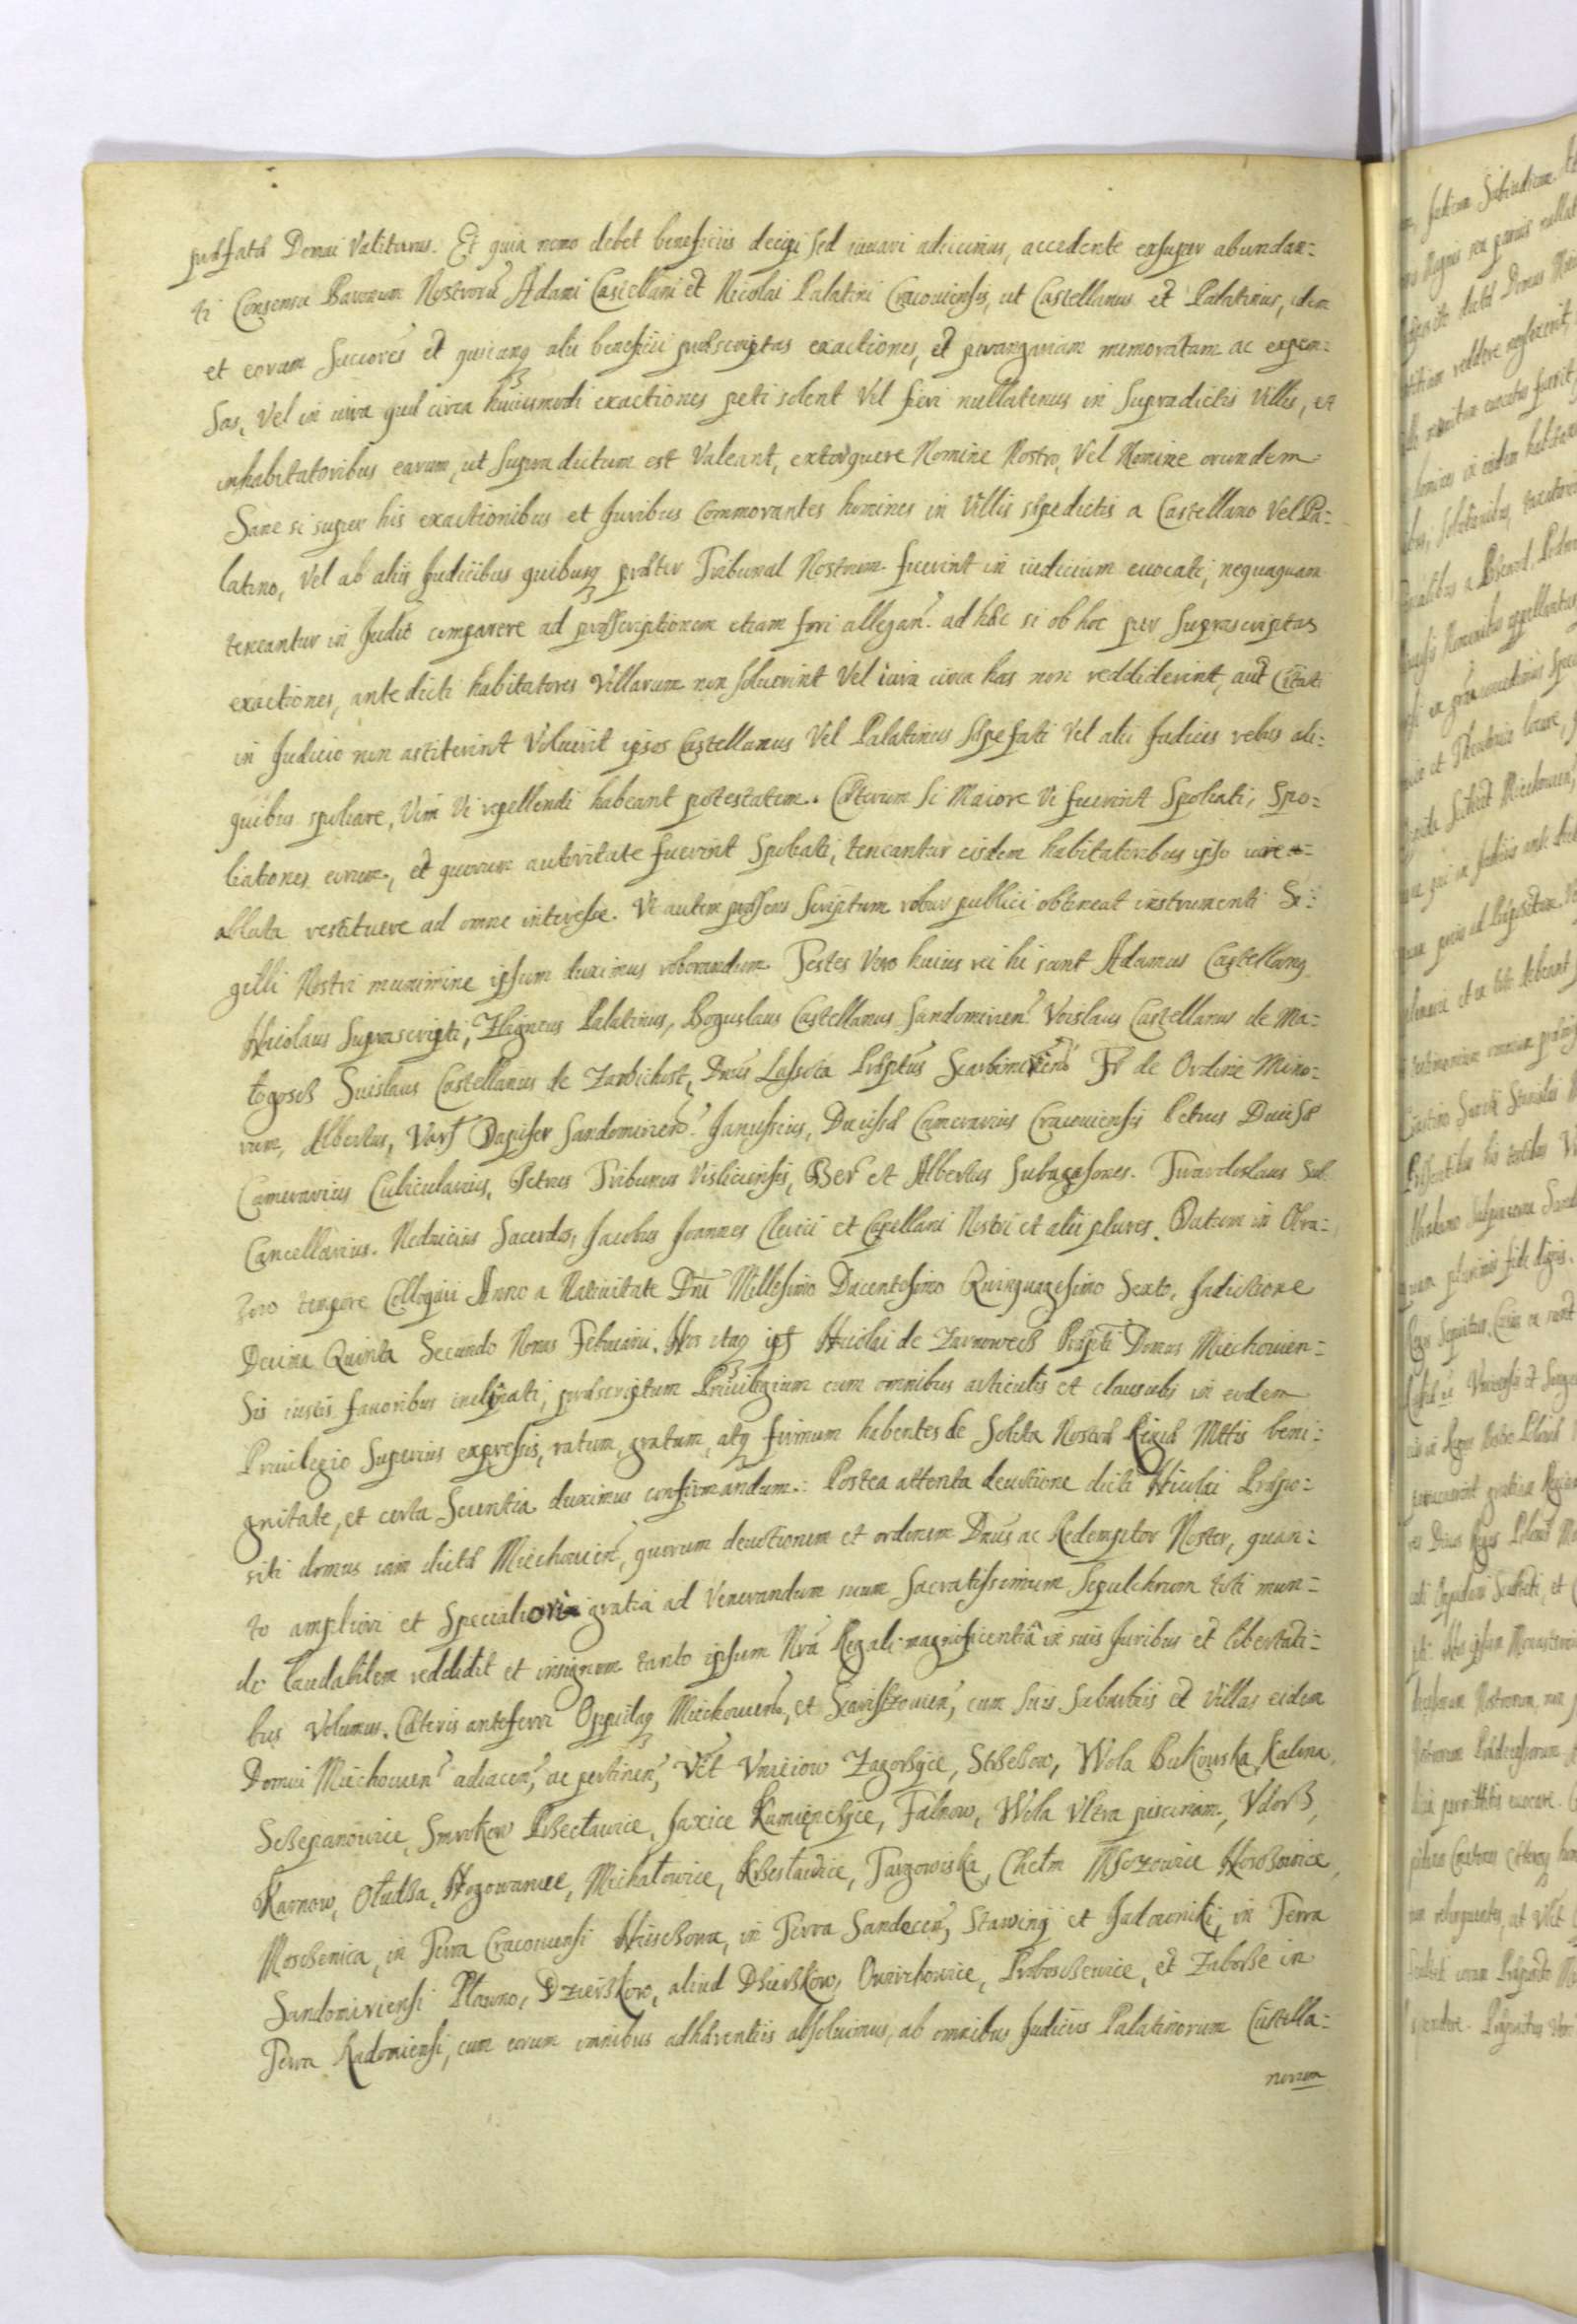 præfatæ Domui Valiturus. Et quia nemo debet beneficiis decipi sed iuuari adiicimus, accedente exsuper abundan=
ti Consensu Baronum Nostrorũ Adami Castellani et Nicolai Palatini Cracouiensis, ut Castellanus et Palatinus, idem
et eorum succores et quicunq alii beneficii præscriptas exactiones, et perangariam memoratam ac expen=
sas, Vel in iura quæ circa huiusmodi exactiones peti solent Vel fieri nullatenus in Supradictis Villis, et
inhabitatoribus earum, ut Supra dictum est Valeant, extorquere Nomine Nostro, Vel Nomine eorundem
Sane si super his exactionibus et Juribus Commorantes homines in Villis sæpedictis a Castellano Vel Pa=
latino, Vel ab aliis Judicibus quibusq præter Tribunal Nostrum fuerint in iudicium euocati, nequaquam
teneantur in Judio comparere ad præscriptionem etiam fori allegan. ad hæc si ob hoc per suprascriptas
exactiones, ante dicti habitatores Villarum non soluerint Vel iura circa has non reddiderint, aut Citati
in Judicio non astiterint Voluerit ipsos Castellanus Vel Palatinus sæpefati Vel alii Judices rebus ali=
quibus spoliare, Vim Vi repellendi habeant potestatem. Cæterum si Maiore Vi fuerint Spoliati, Spo=
liationes eorum, et quorum autoritate fuerint Spoliati, teneantur eisdem habitatoribus ipso iure
ablata restituere ad omne interesse. Vt autem præsens Scriptum robur publici obtineat instrumenti Si=
gilli Nostri munimine ipsum duximus roborandum. Testes Vero huius rei hi sunt Adamus Castellanq
Nicolaus Suprascripti, Zhegneus Palatinus, Boguslaus Castellanus Sandomirien. Voislaus Castellanus de Ma=
togosch Suislaus Castellanus de Zawichost, Dnus Lassota Præptus Scarbimirien Fr de Ordine Mino=
rum, Albertus, Dapifer Sandomirien. Janussius, Camerarius Cracouiensis Petrus
Camerarius Cubicularius, Petrus Tribunus Visliciensis, Ber et Albertus Subagasones. Twardoslaus Sub
Cancellarius. Sacerdos, Jacobus Joannes Clerici et Capellani Nostri et alii plures. Datum in Obra=
zow tempore Colloquii Anno a Natiuitate Dni Millesimo Ducentesimo Quinquagesimo Sexto, Indictione
Decima Quinta Secundo Nonas Februarii. Nos itaq ipS Nicolai de Zarnowecz Præpti Domus Miechouien=
sis iustis fauoribus inclinati, præscriptum Priuilegium cum omnibus articulis et clausulis in eodem
Priuilegio Superius expressis, ratum, gratum, atq firmum habentes de Solita Nostra Regia Mttis beni=
gnitate, et certa Scientia duximus confirmandum. Postea attenta deuotione dicti Nicolai Præpo=
siti domus iam dictæ Miechouien, quorum deuotionem et ordinem Dnus ac Redemptor Noster, quan=
to ampliori et Specialiori gratia ad Venerandum suum Sacratissimum Sepulchrum toti mun=
do laudabilem reddidit et insignem tanto ipsum Nra Regali magnificentia in suis Juribus et libertati=
bus Volumus. Cæteris anteferri Oppidaq Miechouien, et cum suis Suburbiis et Villas eidem
Domui Miechouien adiacen, ac pertinen, Vct Vnieiow Zagorzyce, Strzezow, Wola Bukowska, Kalina,
Sczepanowice, Smrokow Przecławice, Jaxice Kamienczyce, Falnow, Wola Vltra piscinam, Vdorz,
Karnow, Ołudza, Michałowice, Krzesławice, Targowiska, Chełm Mszowice
Moschenica, in Terra Cracouiensi in Terra Sandecen, et Jadowniki, in Terra
Sandomiriensi Pławno, Dzierzkow, aliud Dzierzkow, Owirichowice, Proboszczewice, et Zaborze in
Terra Radomiensi, cum eorum omnibus adhærentiis absoluimus, ab omnibus Judiciis Palatinorum Castella=
norum